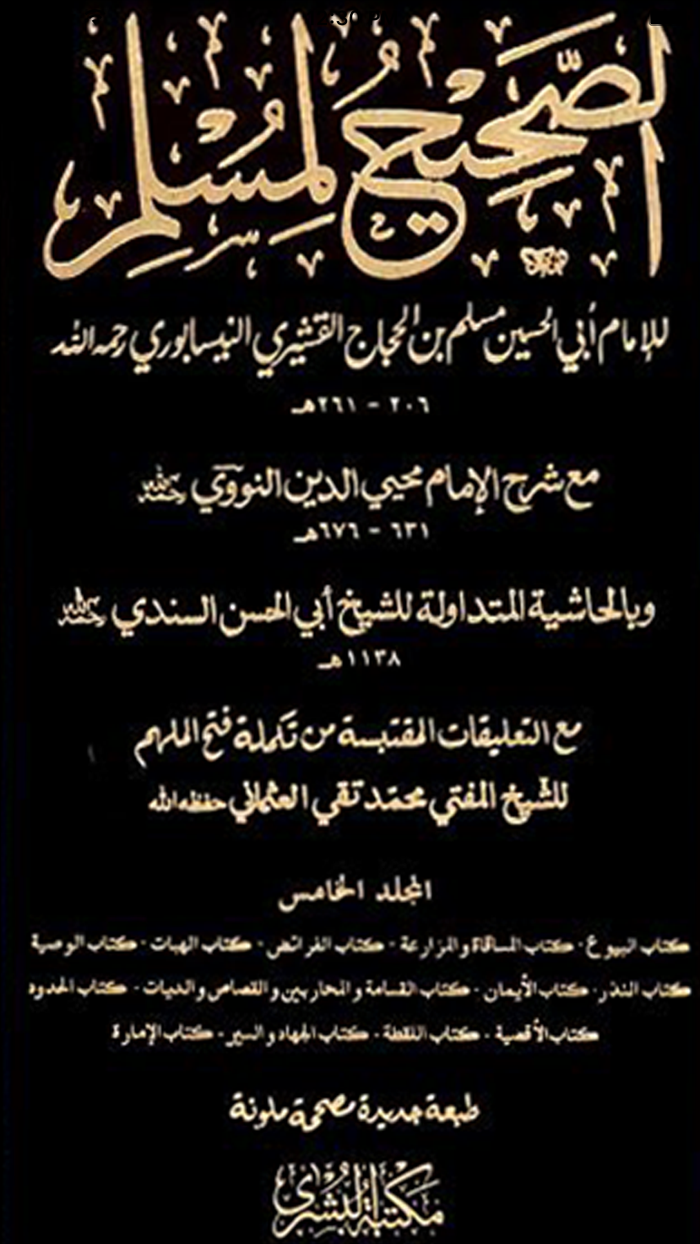 الصَّحِيحُ لِمُسْلِمٍ
للإمام أبي الحسين مسلم بن الحجاج القشيري النيسابوري رحمه الله
٢٠٦ - ٢٦١هـ
مع شرح الإمام محيي الدين النووي رحمه الله
٦٣١ - ٦٧٦هـ
وبالحاشية المتداولة للشيخ أبي الحسن السندي رحمه الله
١١٣٨هـ
مع التعليقات المقتبسة من تكملة فتح الملهم
للشيخ المفتي محمد تقي العثماني حفظه الله
المجلد الخامس
كتاب البيوع - كتاب المساقاة والمزارعة - كتاب الفرائض - كتاب الهبات - كتاب الوصية
كتاب النذر - كتاب الأيمان - كتاب القسامة والمحاربين والقصاص والديات - كتاب الحدود
كتاب الأقضية - كتاب اللقطة - كتاب الجهاد والسير - كتاب الإمارة
طبعة جديدة مصححة ملونة
مكتبة البشرى